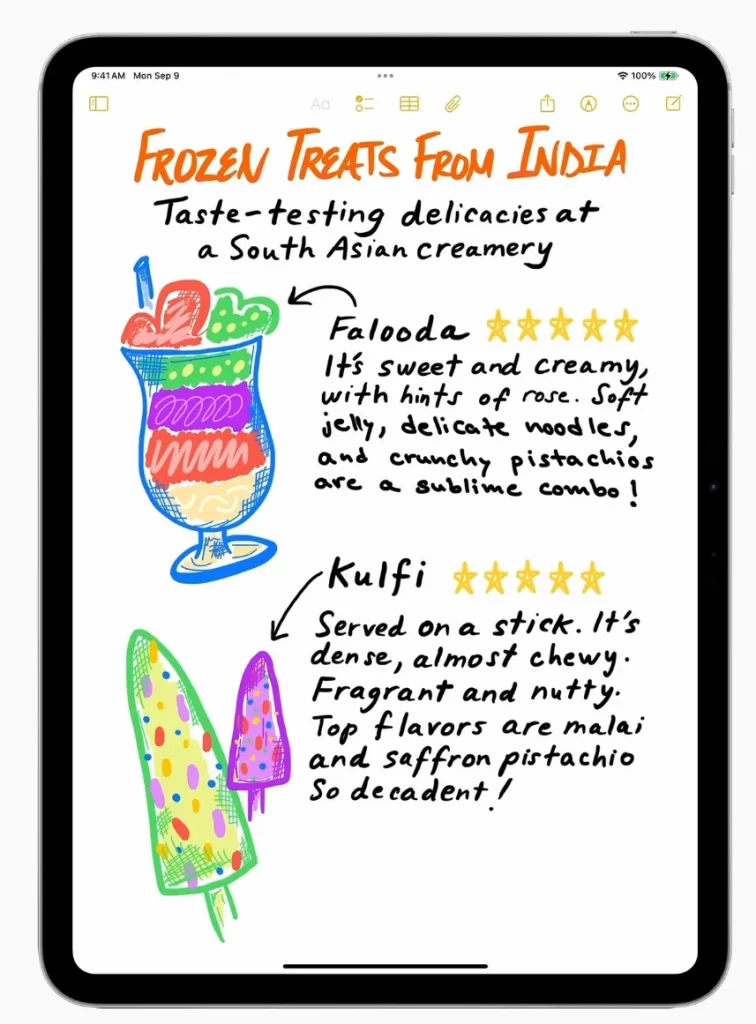 9:41 AM Mon Sep 9
100%
Aa
FROZEN TREATS FROM INDIA
Taste-testing delicacies at
a South Asian creamery
Falooda
It's sweet and creamy,
with hints of rose. Soft
jelly, delicate noodles,
and crunchy pistachios
are a sublime combo!
Kulfi
Served on a stick. It's
dense, almost chewy.
Fragrant and nutty.
Top flavors are malai
and saffron pistachio
So decadent!